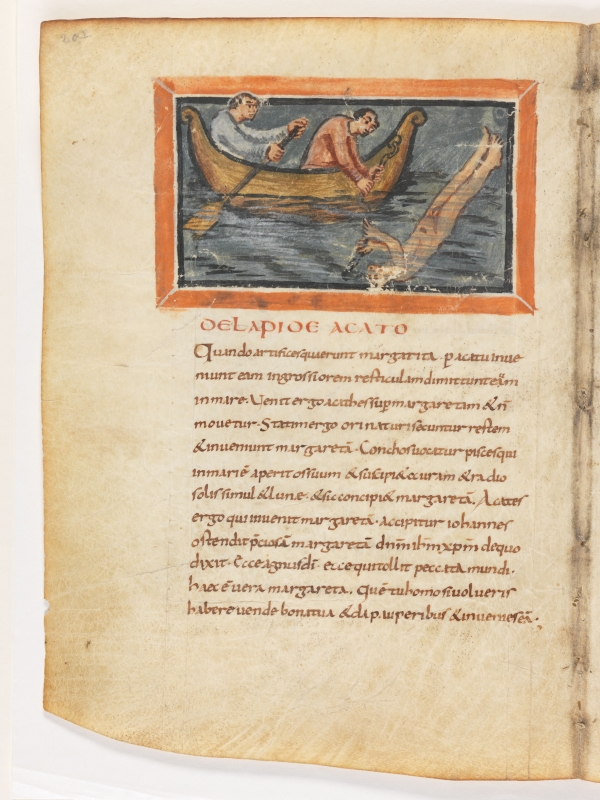 202
DE LAPIDE ACATO
Quando artifices quierunt margarita. p acatu inue
niunt eam ingrossiorem resticulam dimittunt eam
in mare. Uenit ergo acathes sup margaretam & n̄
mouetur. Statim ergo orinaturi secuntur restem
& inueniunt margaretā. Conchos uocatur pisces qui
in mari ē aperit os suum & suscipi& curam & radio
solis simul & lune. & sic concipi& margaretā. Acates
ergo qui inuenit margaretā. accipitur iohannes
ostendit p̄ciosā margaretā dnm̄ ihm̄ xp̄m de quo
dixit. Ecce agnus dī. ecce qui tollit peccata mundi.
haec ē uera margareta. Quē tu homo si uolueris
habere uende bona tua & da pauperibus & inuenies eā.